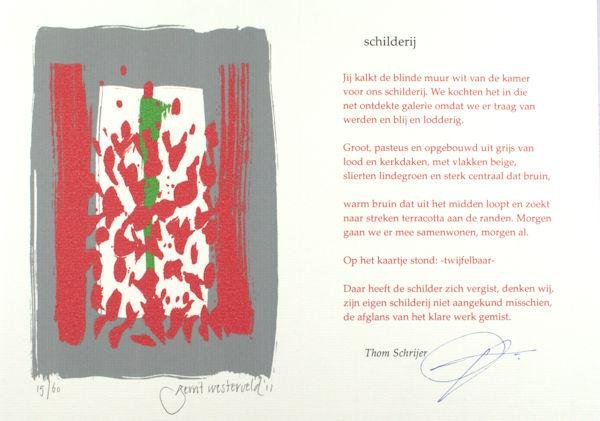 schilderij
Jij kalkt de blinde muur wit van de kamer
voor ons schilderij. We kochten het in die
net ontdekte galerie omdat we er traag van
werden en blij en lodderig.
Groot, pasteus en opgebouwd uit grijs van
lood en kerkdaken, met vlakken beige,
slierten lindegroen en sterk centraal dat bruin,
warm bruin dat uit het midden loopt en zoekt
naar streken terracotta aan de randen. Morgen
gaan we er mee samenwonen, morgen al.
Op het kaartje stond: -twijfelbaar-
Daar heeft de schilder zich vergist, denken wij,
zijn eigen schilderij niet aangekund misschien,
de afglans van het klare werk gemist.
Thom Schrijer
15/60 Gerrit Westerveld '11